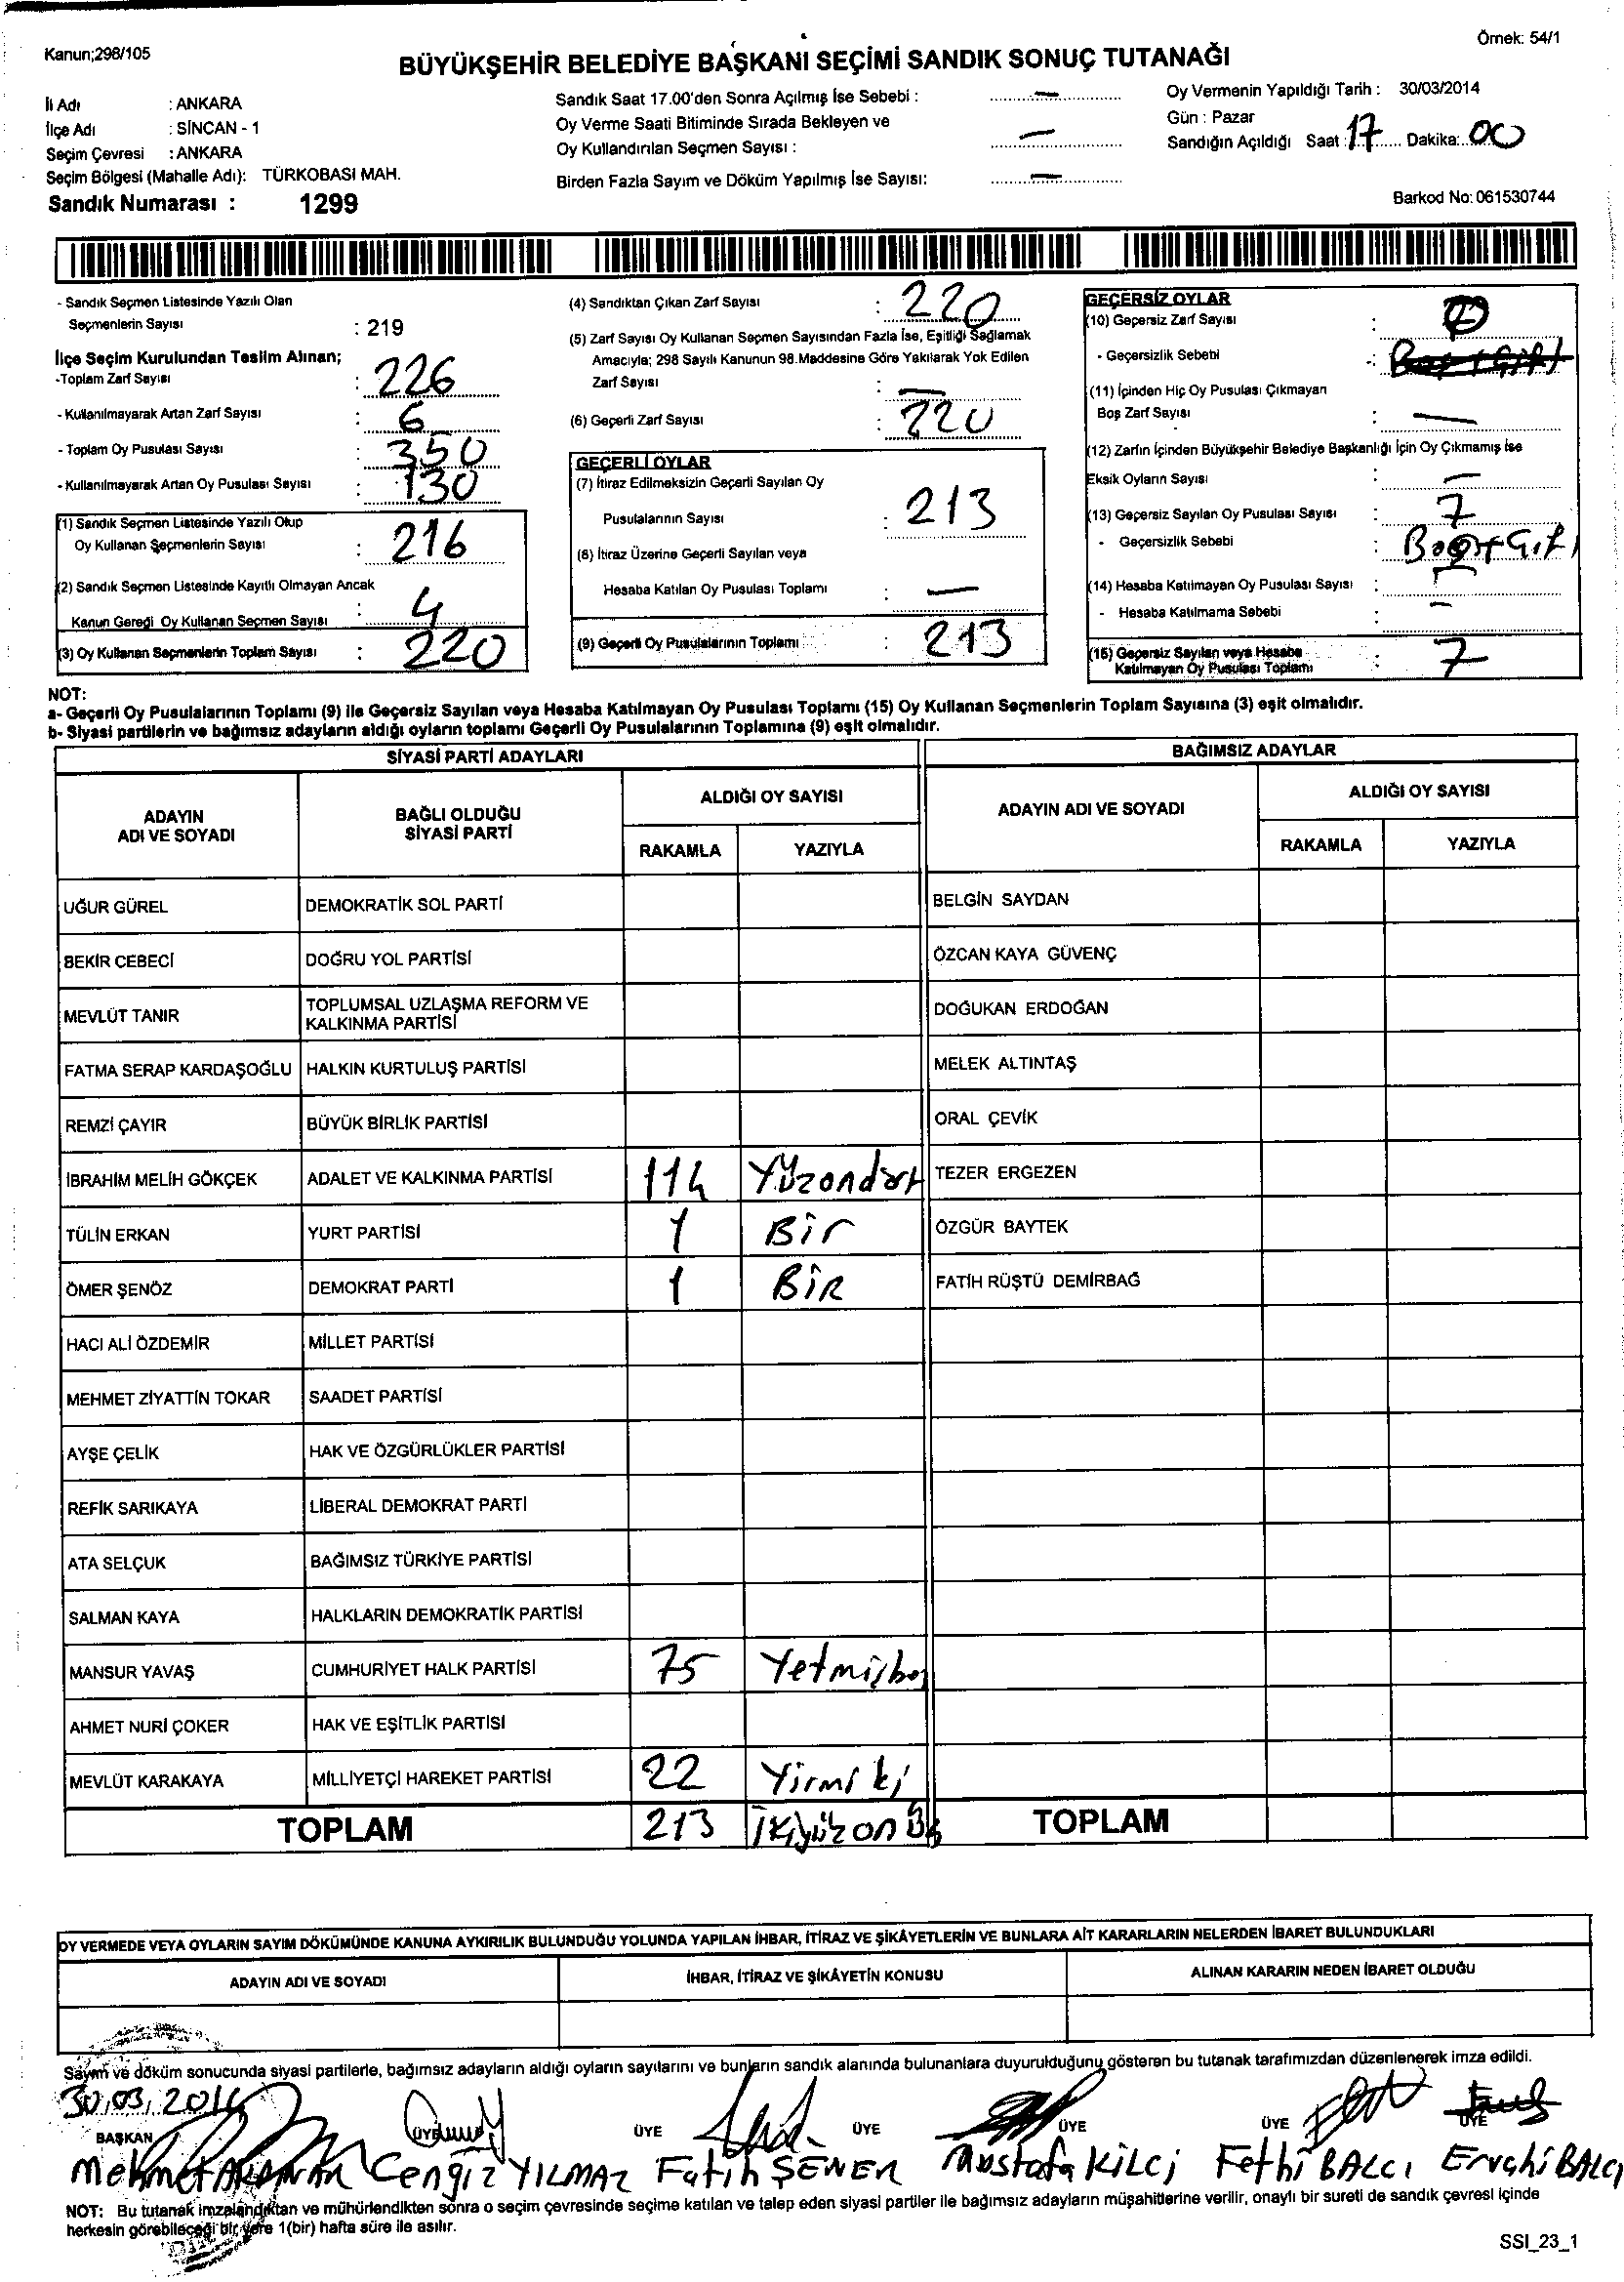 Kanun;298/105
Örnek: 54/1
BÜYÜKŞEHİR BELEDİYE BAŞKANI SEÇİMİ SANDIK SONUÇ TUTANAĞI
İli Adı : ANKARA
İlçe Adı : SİNCAN - 1
Seçim Çevresi : ANKARA
Seçim Bölgesi (Mahalle Adı): TÜRKOBASI MAH.
Sandık Numarası : 1299
Sandık Saat 17.00'den Sonra Açılmış İse Sebebi : —
Oy Verme Saati Bitiminde Sırada Bekleyen ve
Oy Kullandırılan Seçmen Sayısı : —
Birden Fazla Sayım ve Döküm Yapılmış İse Sayısı: —
Oy Vermenin Yapıldığı Tarih : 30/03/2014
Gün : Pazar
Sandığın Açıldığı Saat : 17 Dakika: 00
Barkod No: 061530744
- Sandık Seçmen Listesinde Yazılı Olan
Seçmenlerin Sayısı : 219
İlçe Seçim Kurulundan Teslim Alınan;
-Toplam Zarf Sayısı : 226
- Kullanılmayarak Artan Zarf Sayısı : 6
- Toplam Oy Pusulası Sayısı : 350
- Kullanılmayarak Artan Oy Pusulası Sayısı : 130
(1) Sandık Seçmen Listesinde Yazılı Olup
Oy Kullanan Seçmenlerin Sayısı : 216
(2) Sandık Seçmen Listesinde Kayıtlı Olmayan Ancak
Kanun Gereği Oy Kullanan Seçmen Sayısı : 4
(3) Oy Kullanan Seçmenlerin Toplam Sayısı : 220
(4) Sandıktan Çıkan Zarf Sayısı : 220
(5) Zarf Sayısı Oy Kullanan Seçmen Sayısından Fazla İse, Eşitliği Sağlamak
Amacıyla; 298 Sayılı Kanunun 98.Maddesine Göre Yakılarak Yok Edilen
Zarf Sayısı : —
(6) Geçerli Zarf Sayısı : 220
GEÇERLİ OYLAR
(7) İtiraz Edilmeksizin Geçerli Sayılan Oy
Pusulalarının Sayısı : 213
(8) İtiraz Üzerine Geçerli Sayılan veya
Hesaba Katılan Oy Pusulası Toplamı : —
(9) Geçerli Oy Pusulalarının Toplamı : 213
GEÇERSİZ OYLAR
(10) Geçersiz Zarf Sayısı :
- Geçersizlik Sebebi :
(11) İçinden Hiç Oy Pusulası Çıkmayan
Boş Zarf Sayısı : —
(12) Zarfın İçinden Büyükşehir Belediye Başkanlığı İçin Oy Çıkmamış İse
Eksik Oyların Sayısı : —
(13) Geçersiz Sayılan Oy Pusulası Sayısı : 7
- Geçersizlik Sebebi : Boş+Çift
(14) Hesaba Katılmayan Oy Pusulası Sayısı : —
- Hesaba Katılmama Sebebi : —
(15) Geçersiz Sayılan veya Hesaba
Katılmayan Oy Pusulası Toplamı : 7
NOT:
a- Geçerli Oy Pusulalarının Toplamı (9) ile Geçersiz Sayılan veya Hesaba Katılmayan Oy Pusulası Toplamı (15) Oy Kullanan Seçmenlerin Toplam Sayısına (3) eşit olmalıdır.
b- Siyasi partilerin ve bağımsız adayların aldığı oyların toplamı Geçerli Oy Pusulalarının Toplamına (9) eşit olmalıdır.
SİYASİ PARTİ ADAYLARI
ADAYIN
ADI VE SOYADI
BAĞLI OLDUĞU
SİYASİ PARTİ
ALDIĞI OY SAYISI
RAKAMLA YAZIYLA
UĞUR GÜREL DEMOKRATİK SOL PARTİ
BEKİR CEBECİ DOĞRU YOL PARTİSİ
MEVLÜT TANIR TOPLUMSAL UZLAŞMA REFORM VE
KALKINMA PARTİSİ
FATMA SERAP KARDAŞOĞLU HALKIN KURTULUŞ PARTİSİ
REMZİ ÇAYIR BÜYÜK BİRLİK PARTİSİ
İBRAHİM MELİH GÖKÇEK ADALET VE KALKINMA PARTİSİ 114 Yüzondört
TÜLİN ERKAN YURT PARTİSİ 1 Bir
ÖMER ŞENÖZ DEMOKRAT PARTİ 1 BİR
HACI ALİ ÖZDEMİR MİLLET PARTİSİ
MEHMET ZİYATTİN TOKAR SAADET PARTİSİ
AYŞE ÇELİK HAK VE ÖZGÜRLÜKLER PARTİSİ
REFİK SARIKAYA LİBERAL DEMOKRAT PARTİ
ATA SELÇUK BAĞIMSIZ TÜRKİYE PARTİSİ
SALMAN KAYA HALKLARIN DEMOKRATİK PARTİSİ
MANSUR YAVAŞ CUMHURİYET HALK PARTİSİ 75 Yetmişbeş
AHMET NURİ ÇOKER HAK VE EŞİTLİK PARTİSİ
MEVLÜT KARAKAYA MİLLİYETÇİ HAREKET PARTİSİ 22 Yirmi ki
TOPLAM 213 İkiyüzonüç
BAĞIMSIZ ADAYLAR
ADAYIN ADI VE SOYADI
ALDIĞI OY SAYISI
RAKAMLA YAZIYLA
BELGİN SAYDAN
ÖZCAN KAYA GÜVENÇ
DOĞUKAN ERDOĞAN
MELEK ALTINTAŞ
ORAL ÇEVİK
TEZER ERGEZEN
ÖZGÜR BAYTEK
FATİH RÜŞTÜ DEMİRBAĞ
TOPLAM
OY VERMEDE VEYA OYLARIN SAYIM DÖKÜMÜNDE KANUNA AYKIRILIK BULUNDUĞU YOLUNDA YAPILAN İHBAR, İTİRAZ VE ŞİKÂYETLERİN VE BUNLARA AİT KARARLARIN NELERDEN İBARET BULUNDUKLARI
ADAYIN ADI VE SOYADI İHBAR, İTİRAZ VE ŞİKÂYETİN KONUSU ALINAN KARARIN NEDEN İBARET OLDUĞU
Sayım ve döküm sonucunda siyasi partilerle, bağımsız adayların aldığı oyların sayılarını ve bunların sandık alanında bulunanlara duyurulduğunu gösteren bu tutanak tarafımızdan düzenlenerek imza edildi.
30.03.2014
BAŞKAN ÜYE ÜYE ÜYE ÜYE ÜYE ÜYE
Mehmet Cengiz YILMAZ Fatih ŞENER Mustafa KİLCİ Fethi BALCI BALCI
NOT: Bu tutanak imzalandıktan ve mühürlendikten sonra o seçim çevresinde seçime katılan ve talep eden siyasi partiler ile bağımsız adayların müşahitlerine verilir, onaylı bir sureti de sandık çevresi içinde
herkesin görebileceği bir yere 1(bir) hafta süre ile asılır.
SSI_23_1